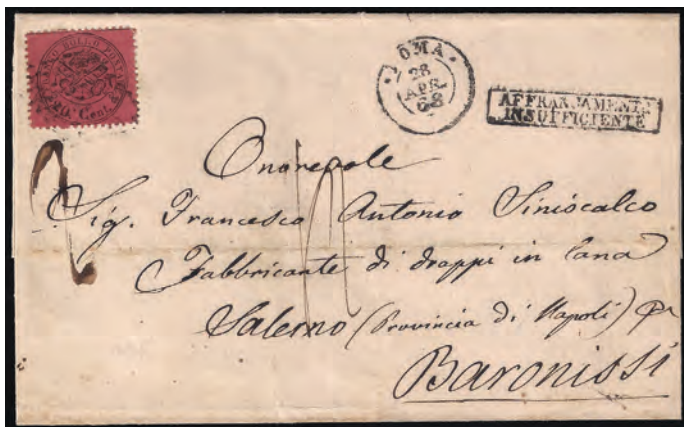 ROMA
26
APR
68
AFFRANCAMENTO
INSUFFICIENTE
Cent.
2
Onorevole
Sig. Francesco Antonio Siniscalco
Fabbricante di drappi in lana
Salerno (Provincia di Napoli)
Baronissi